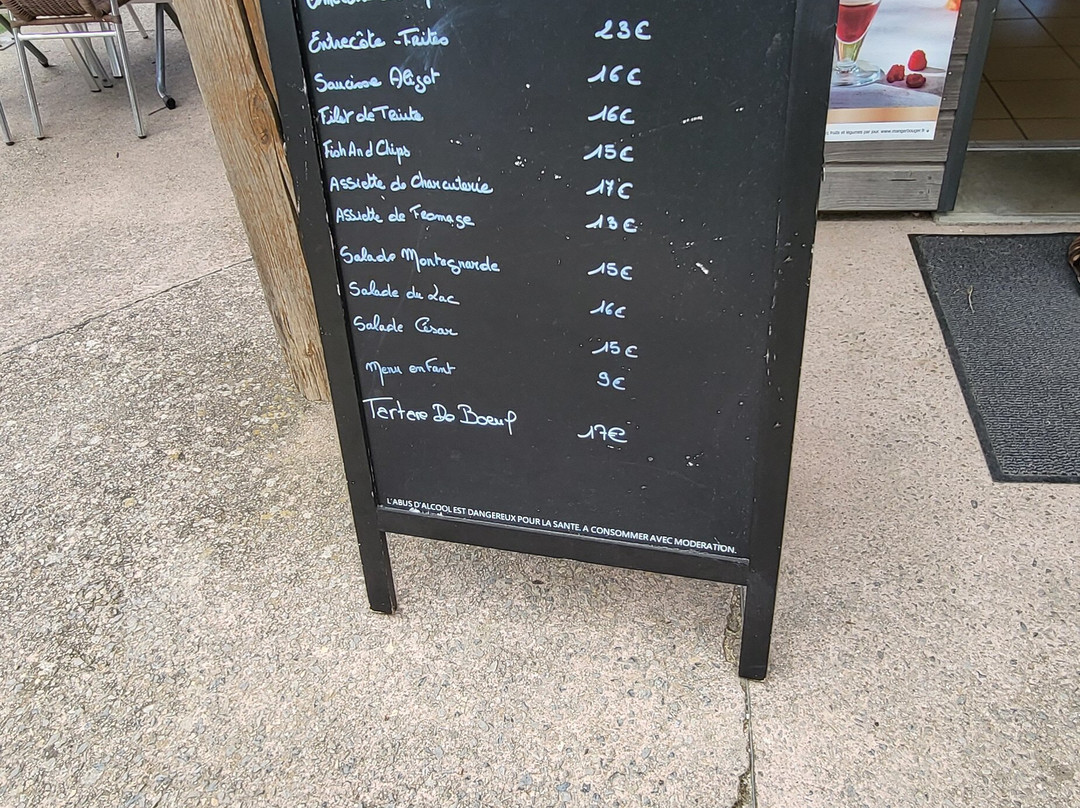 Entrecôte - Frites 23€
Saucisse Aligot 16€
Filet de Truite 16€
Fish And Chips 15€
Assiette de Charcuterie 17€
Assiette de Fromage 13€
Salade Montagnarde 15€
Salade du Lac 16€
Salade César 15€
Menu enfant 9€
Tartare De Boeuf 17€
L'ABUS D'ALCOOL EST DANGEREUX POUR LA SANTE. A CONSOMMER AVEC MODERATION.
fruits et légumes par jour. www.mangerbouger.fr